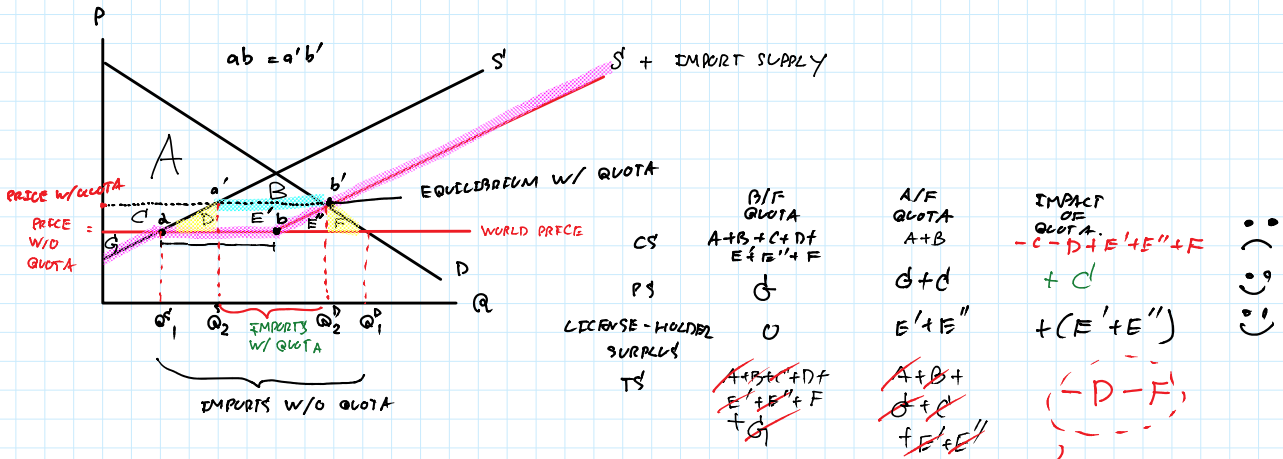 P
ab = a'b'
S
S + IMPORT SUPPLY
A
PRICE W/QUOTA
a'
B
b'
EQUILIBRIUM W/ QUOTA
PRICE =
W/O
QUOTA
C
a
D
E'
b
E''
F
WORLD PRICE
G
D
Q
Q₁ˢ
Q₂ˢ
Q₂ᴰ
Q₁ᴰ
IMPORTS
W/ QUOTA
IMPORTS W/O QUOTA
B/F
QUOTA
A/F
QUOTA
IMPACT
OF
QUOTA.
CS
A+B+C+D+
E'+E''+F
A+B
-C-D+E'+E''+F
PS
G
G+C
+ C
LICENSE-HOLDER
SURPLUS
0
E'+E''
+(E'+E'')
TS
A+B+C+D+
E'+E''+F
+G
A+B+
G+C
+E'+E''
-D-F